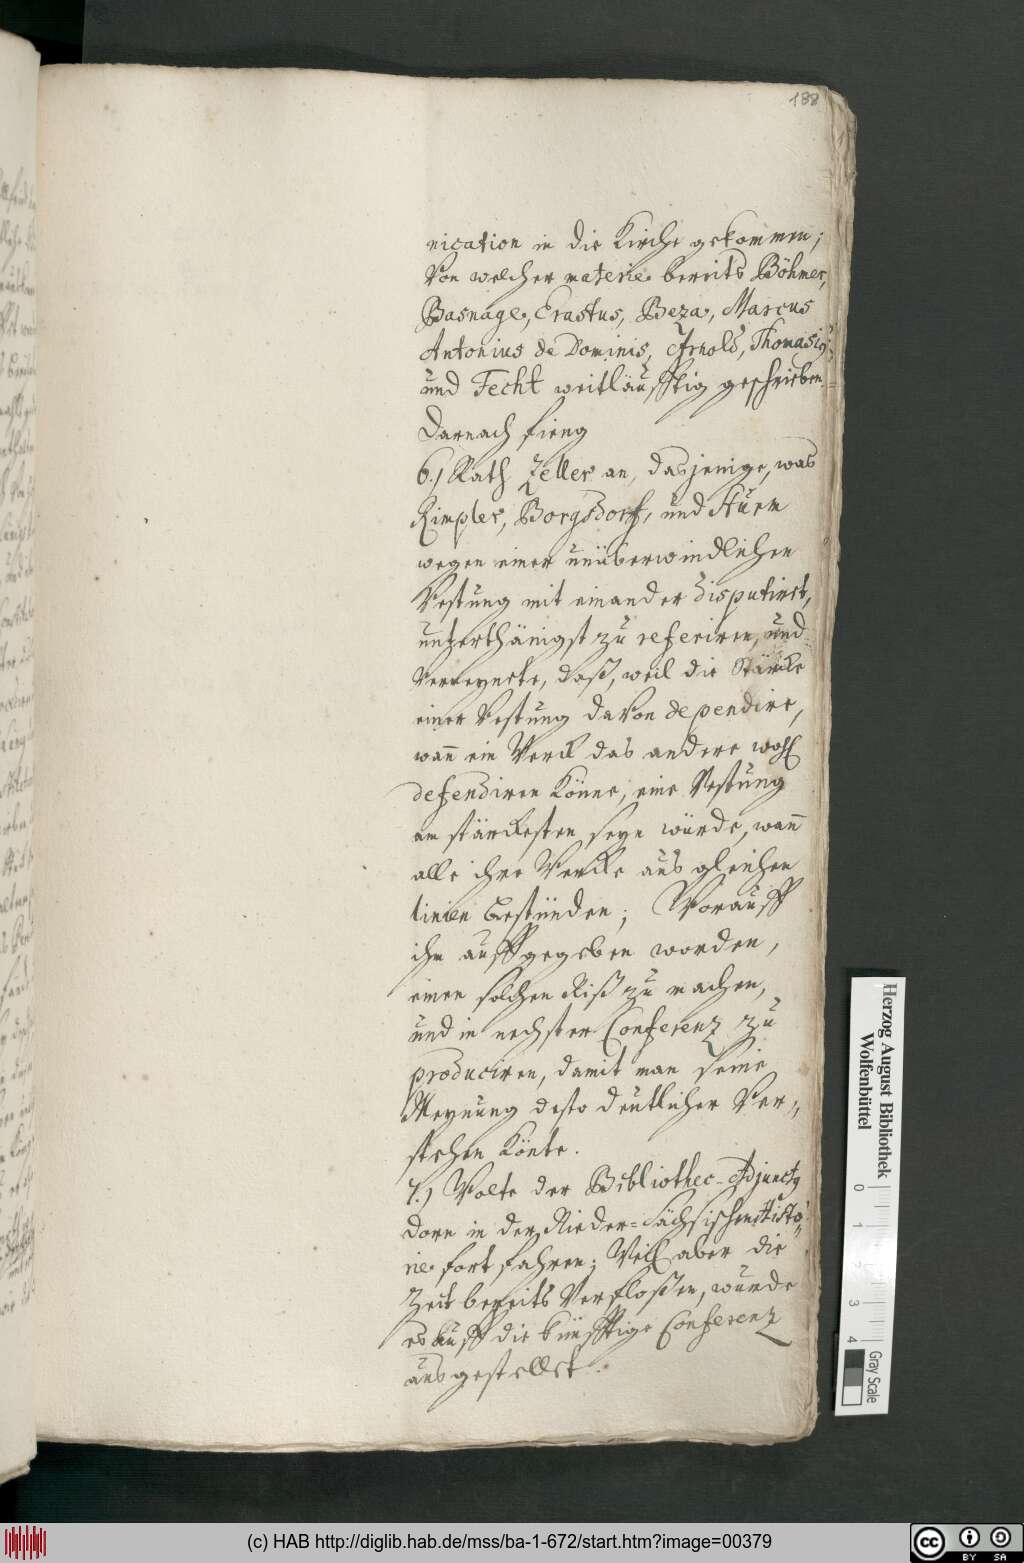 188
nication in die Kirche gekommen;
Von welcher materie bereits Böhmer,
Basnage, Erastus, Beza, Marcus
Antonius de Dominis, Arnold, Thomasius
und Fecht weitläufftig geschrieben
Darnach fieng
6.) Rath Zeller an, dasjenige, was
Rimpler, Borgsdorf, und Sturm
wegen einer unüberwindlichen
Vestung mit einander disputiret,
unterthänigst zu referiren, und
Vermeynete, daß, weil die Stärcke
einer Vestung davon dependire,
wann ein Werck das andere wohl
defendiren könne, eine Vestung
am stärckesten seyn würde, wann
alle ihre Wercke aus gleichen
linien bestünden; Worauff
ihm auffgegeben worden,
einen solchen Riß zu machen,
und in nechster Conferenz zu
produciren, damit man seine
Meynung desto deutlicher Ver-
stehen könte.
7.) Wolte der Bibliothec-Adjunctus
Dorn in der Nieder-Sächsischen Histo-
rie fortfahren; Weil aber die
Zeit bereits Verfloßen, wurde
es auff die künfftige Conferenz
ausgestellet.
Herzog August Bibliothek
Wolfenbüttel
0 1 2 3 4
Gray Scale
(c) HAB http://diglib.hab.de/mss/ba-1-672/start.htm?image=00379
cc BY SA